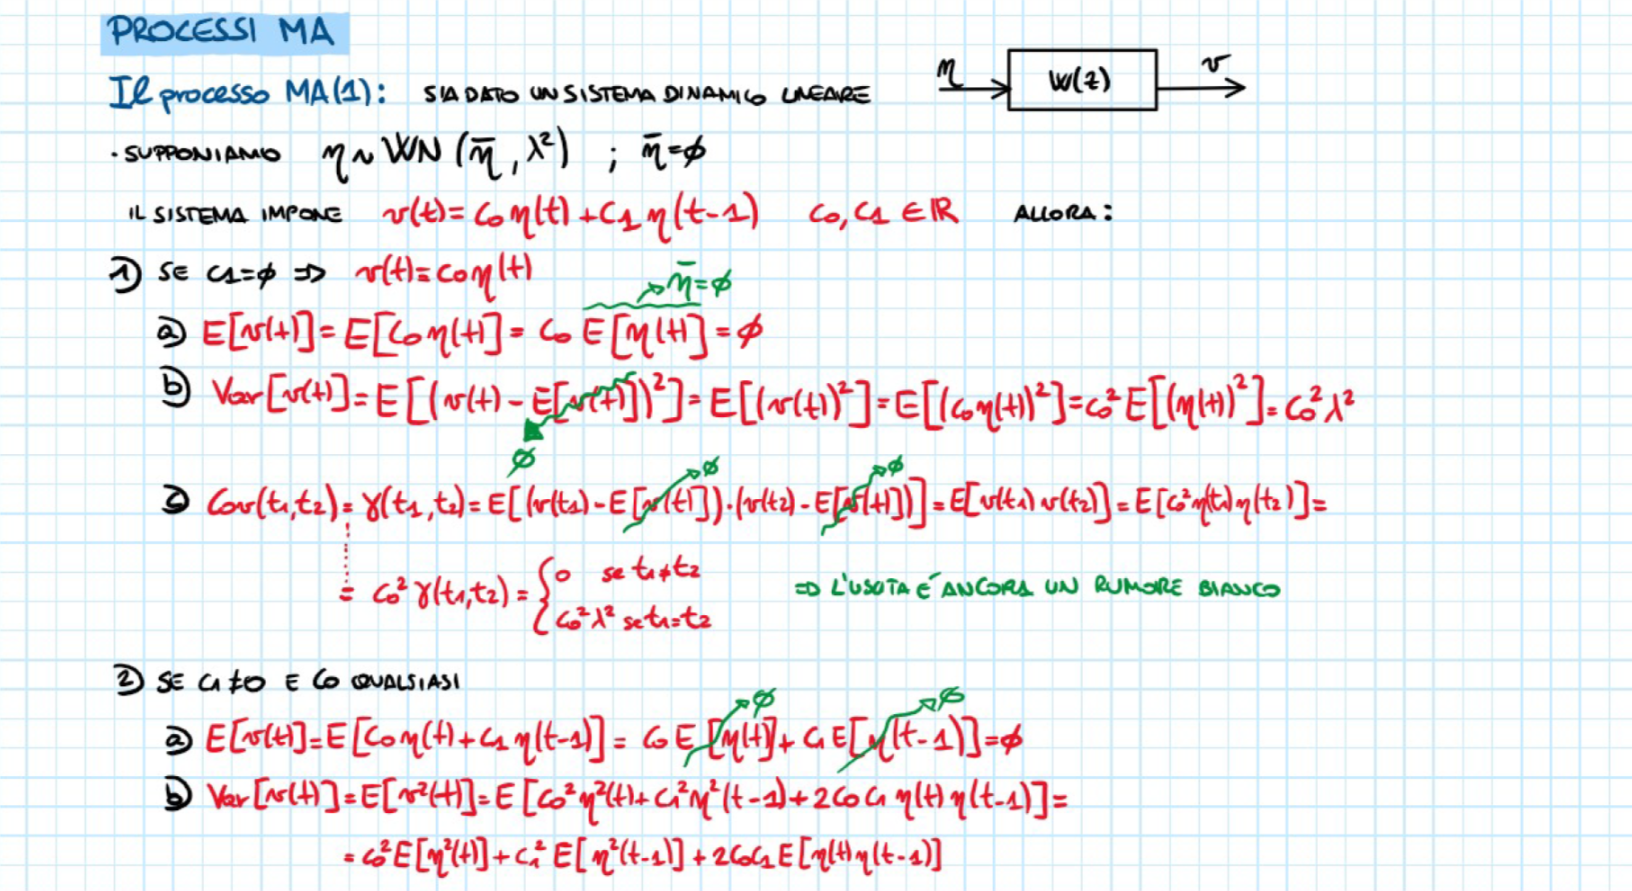 PROCESSI MA
Il processo MA(1): SIA DATO UN SISTEMA DINAMICO LINEARE
η W(z) v
· SUPPONIAMO η ~ WN (η̄, λ²) ; η̄=ϕ
IL SISTEMA IMPONE v(t)= C₀η(t)+C₁η(t-1) C₀, C₁ ∈ ℝ ALLORA:
1) SE C₁=ϕ ⇒ v(t)=C₀η(t)
η̄=ϕ
a) E[v(t)]=E[C₀η(t)]= C₀ E[η(t)]=ϕ
b) Var[v(t)]=E[(v(t)-E[v(t)])²]=E[(v(t))²]=E[(C₀η(t))²]=C₀²E[(η(t))²]=C₀²λ²
ϕ
ϕ ϕ
c) Cov(t₁,t₂)=γ(t₁,t₂)=E[(v(t₁)-E[v(t)])·(v(t₂)-E[v(t)])]=E[v(t₁)v(t₂)]=E[C₀²η(t₁)η(t₂)]=
= C₀²γ(t₁,t₂)= { 0 se t₁≠t₂
C₀²λ² se t₁=t₂
⇒ L'USCITA É ANCORA UN RUMORE BIANCO
2) SE C₁≠0 E C₀ QUALSIASI
ϕ ϕ
a) E[v(t)]=E[C₀η(t)+C₁η(t-1)]= C₀E[η(t)]+C₁E[η(t-1)]=ϕ
b) Var[v(t)]=E[v²(t)]=E[C₀²η²(t)+C₁²η²(t-1)+2C₀C₁η(t)η(t-1)]=
= C₀²E[η²(t)]+C₁²E[η²(t-1)]+2C₀C₁E[η(t)η(t-1)]